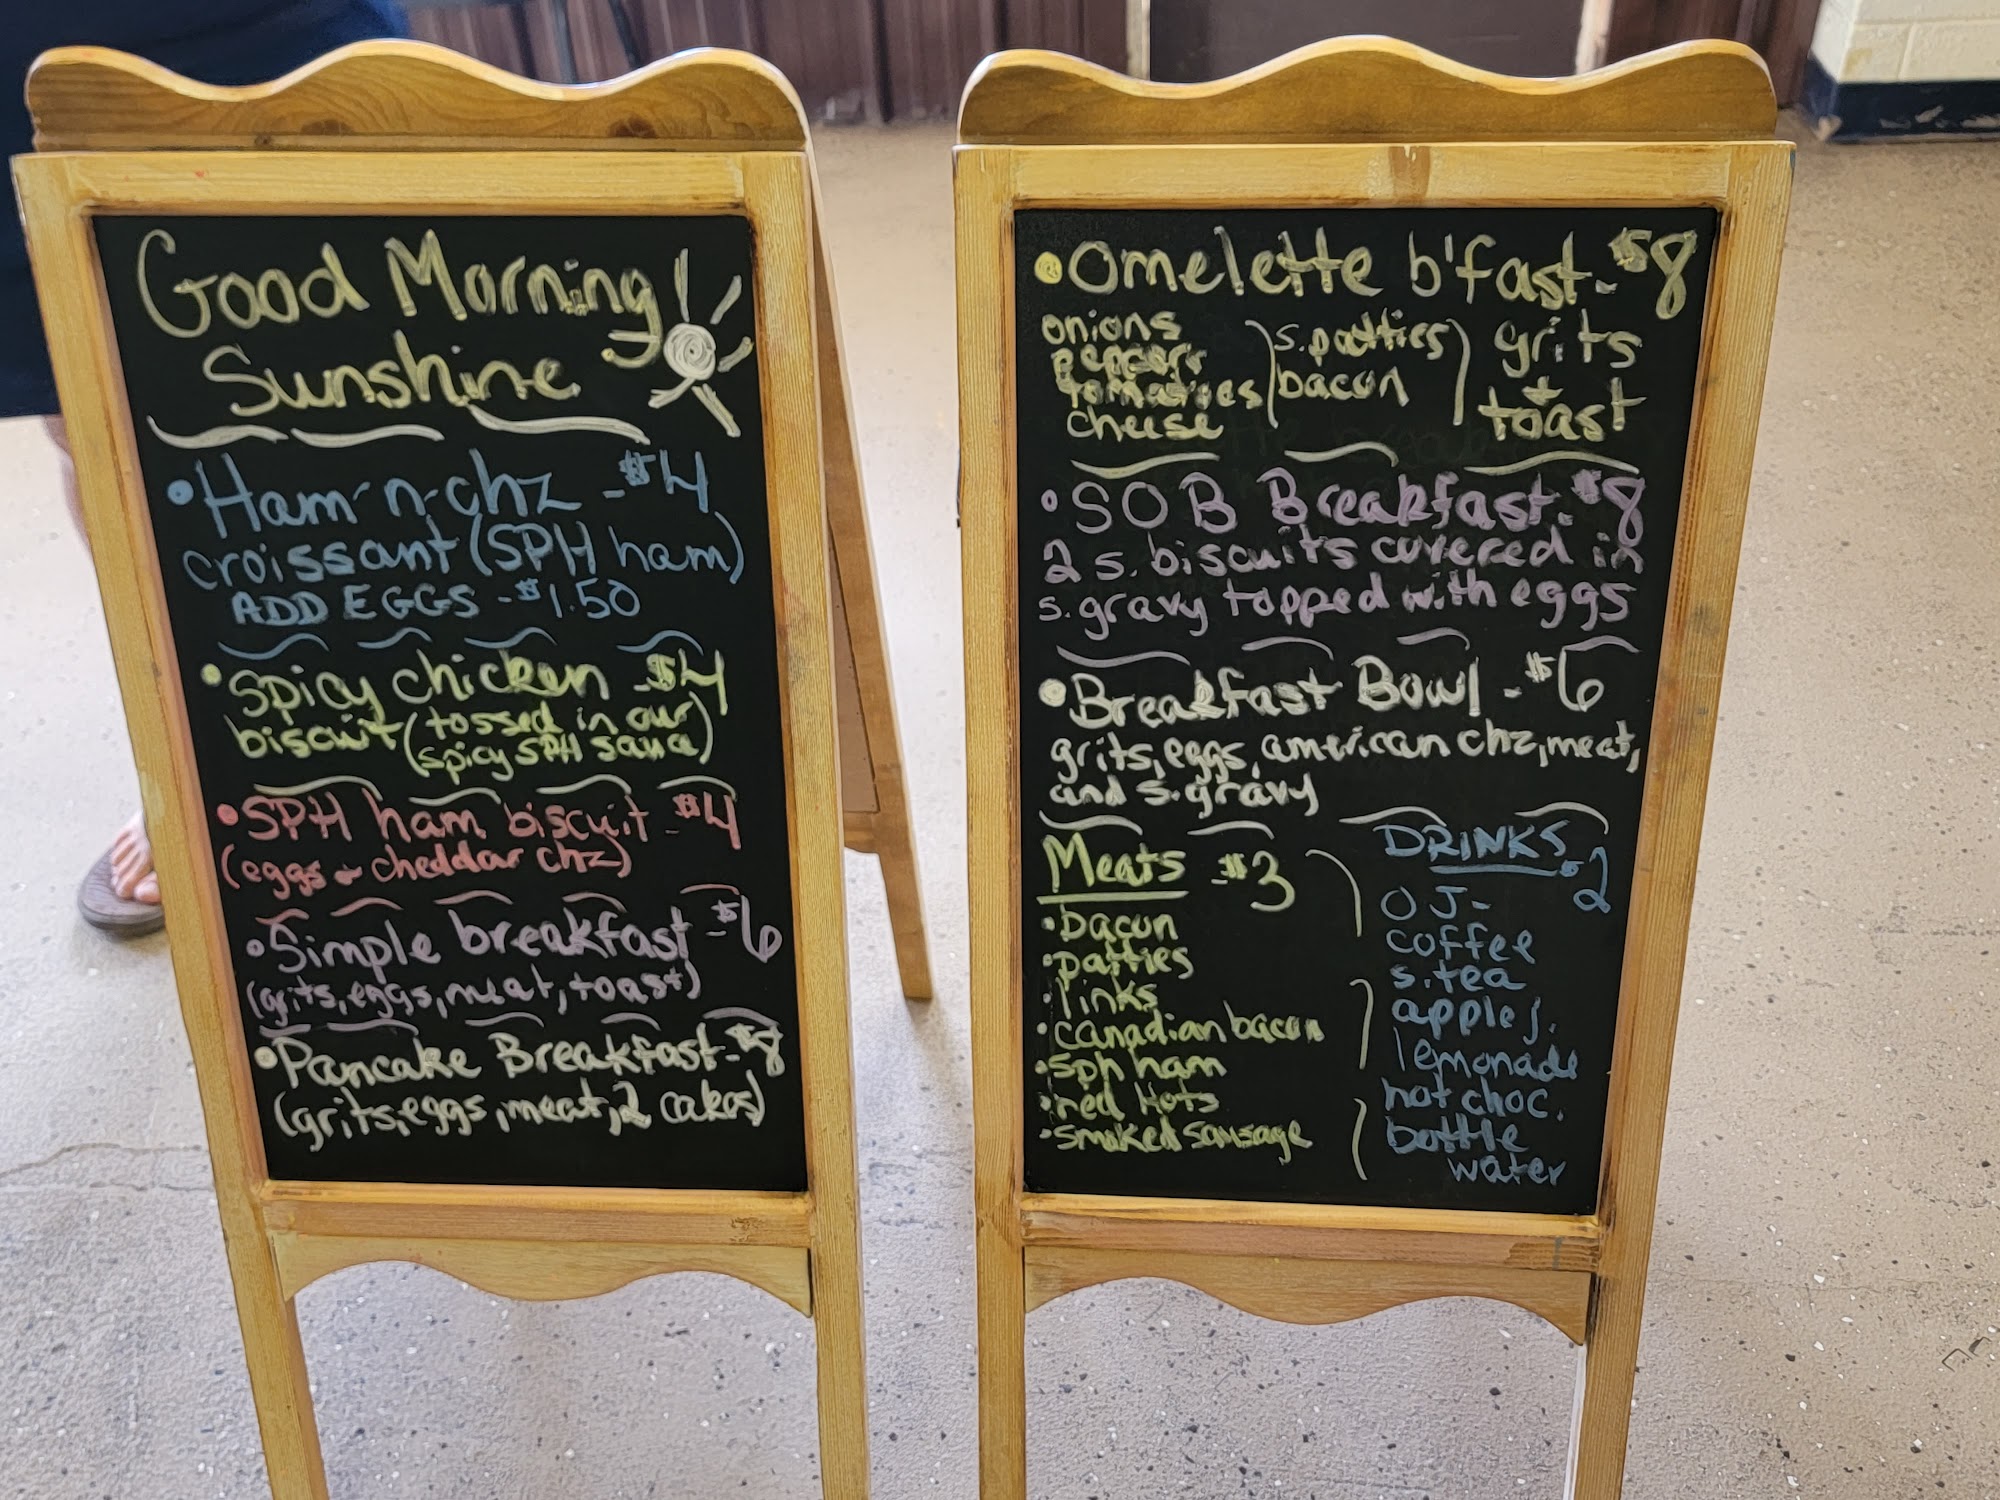 Good Morning
Sunshine
• Ham-n-chz - $4
croissant (SPH ham)
ADD EGGS - $1.50
• Spicy chicken - $4
biscuit (tossed in our
spicy SPH sauce)
• SPH ham biscuit - $4
(eggs + cheddar chz)
• Simple breakfast - $6
(grits, eggs, meat, toast)
• Pancake Breakfast - $8
(grits, eggs, meat, 2 cakes)
• Omelette b'fast - $8
onions
peppers
tomatoes
cheese
s. patties
bacon
grits
+
toast
• SOB Breakfast - $8
2 s. biscuits covered in
s. gravy topped with eggs
• Breakfast Bowl - $6
grits, eggs, american chz, meat,
and s. gravy
Meats - $3
• bacon
• patties
• links
• canadian bacon
• sph ham
• red hots
• smoked sausage
DRINKS
$2
OJ -
coffee
s. tea
apple j.
lemonade
hot choc.
bottle
water